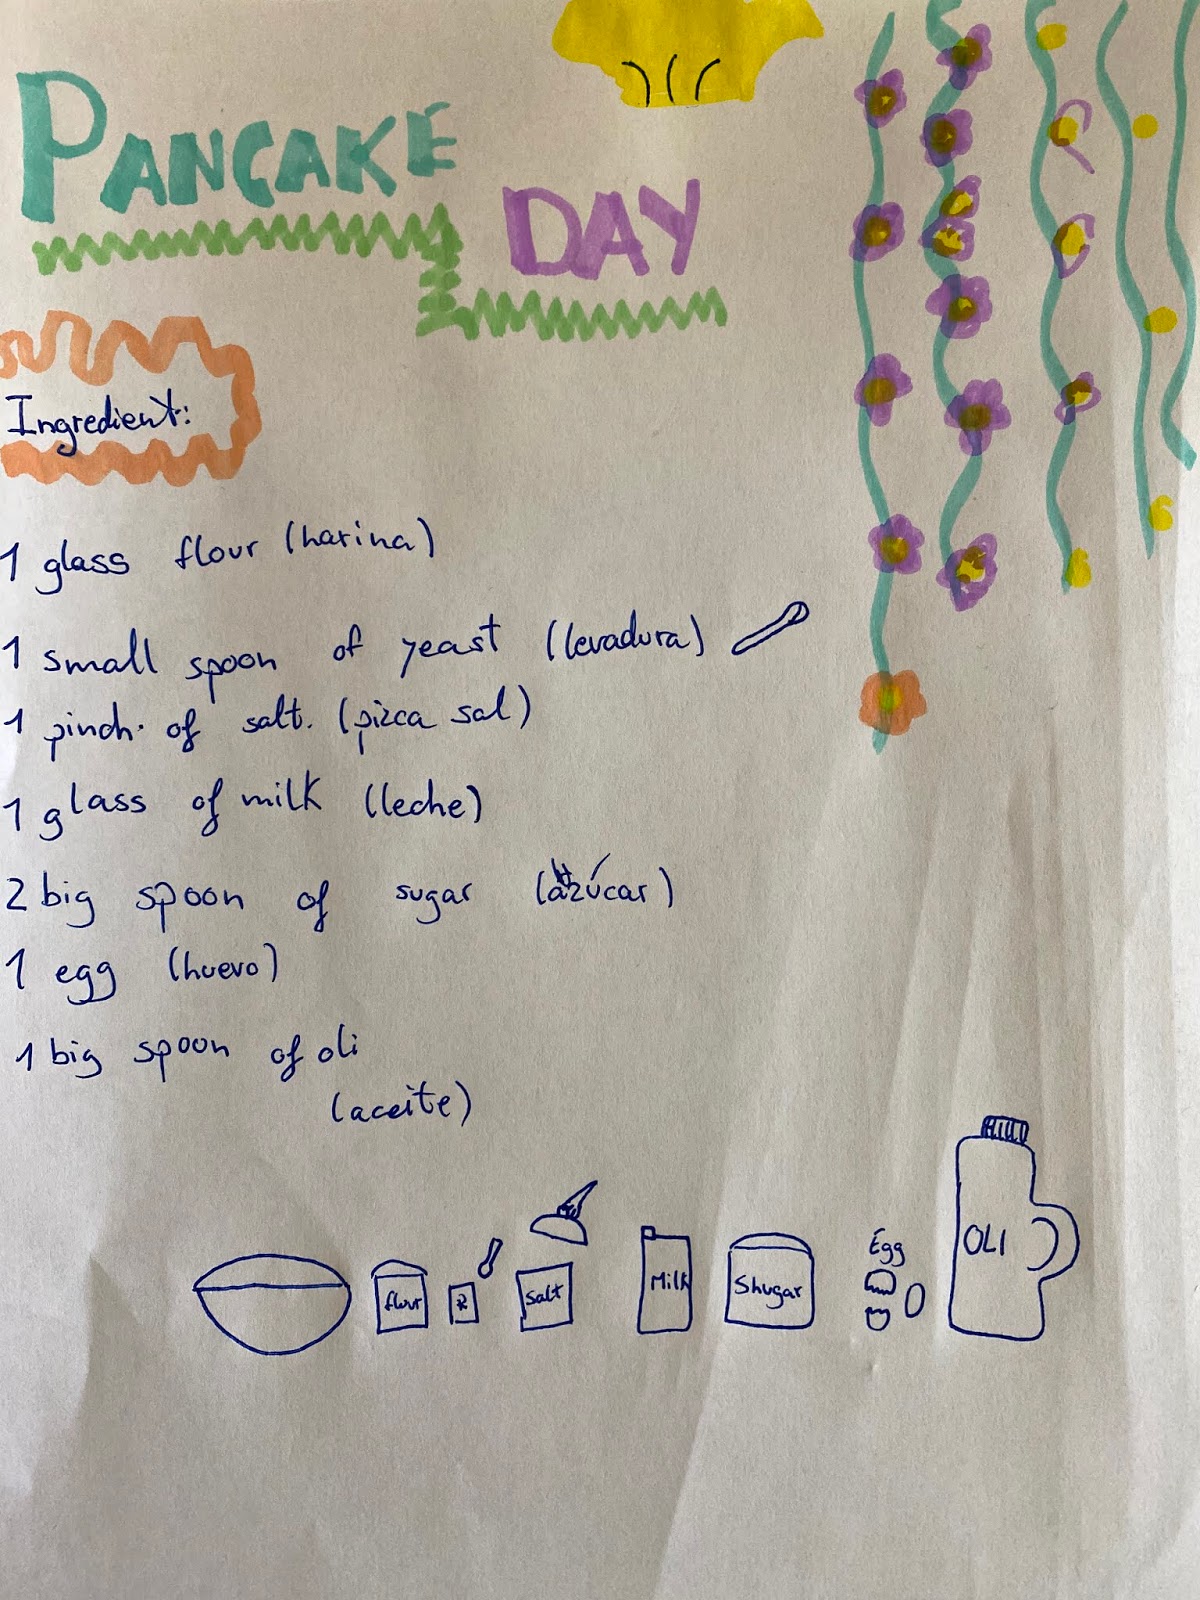 PANCAKE
DAY
Ingredient:
1 glass flour (harina)
1 small spoon of yeast (levadura)
1 pinch. of salt. (pizca sal)
1 glass of milk (leche)
2 big spoon of sugar (azúcar)
1 egg (huevo)
1 big spoon of oli
(aceite)
flour
salt
Milk
Shugar
Egg
OLI